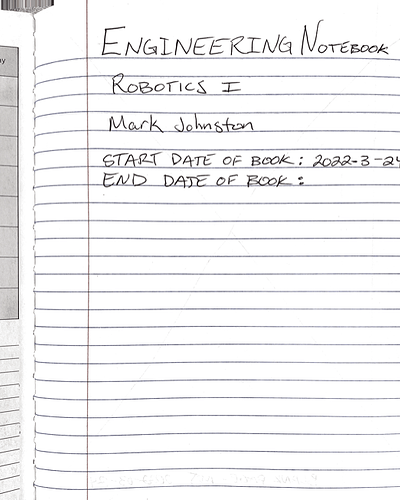 ENGINEERING NOTEBOOK
ROBOTICS I
Mark Johnston
START DATE OF BOOK: 2022-3-24
END DATE OF BOOK: